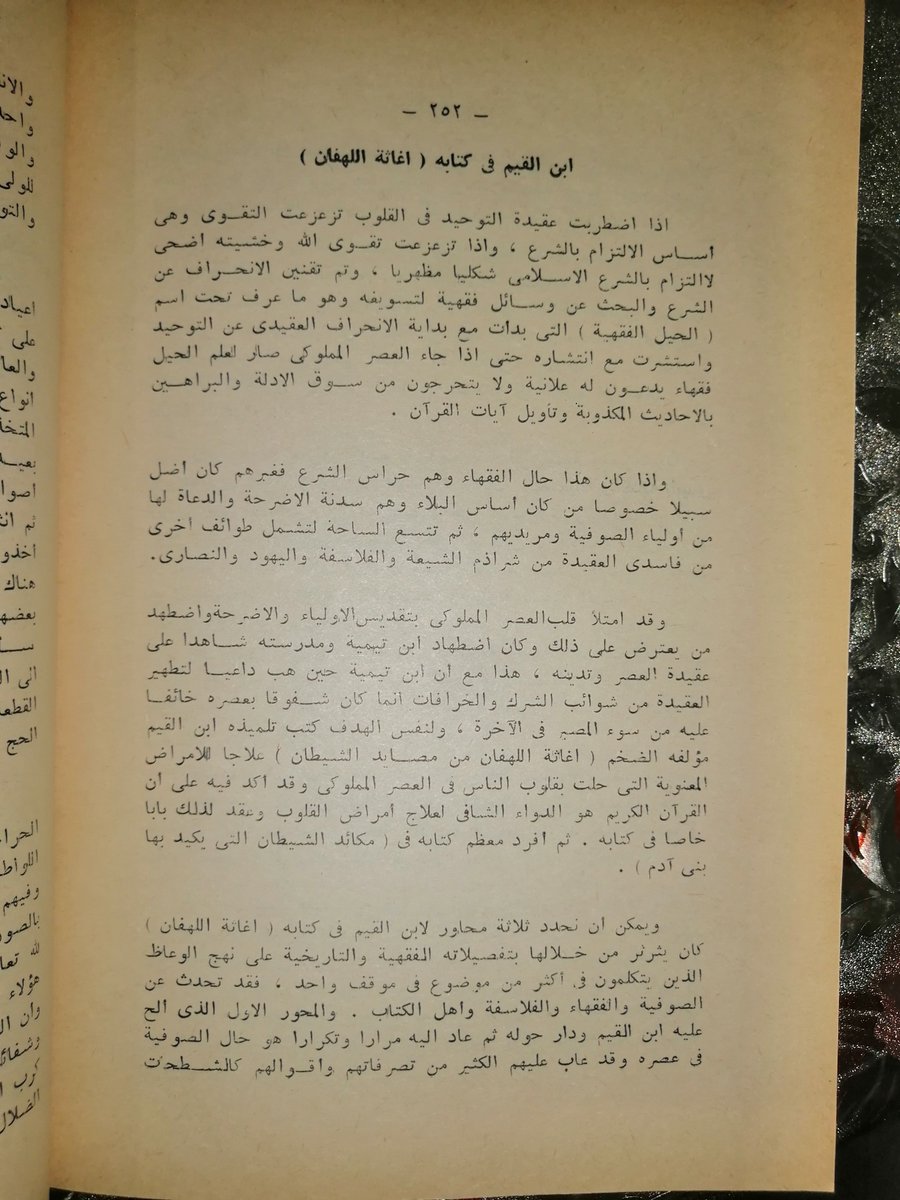 — ٢٥٢ —
ابن القيم فى كتابه ( اغاثة اللهفان )
اذا اضطربت عقيدة التوحيد فى القلوب تزعزعت التقـوى وهى
أسـاس الالتزام بالشرع ، واذا تزعزعت تقـوى الله وخشيته اضحى
لاالتزام بالشرع الاسـلامى شكليا مظهريا ، وتم تقنين الانحـراف عن
الشرع والبحث عن وسـائل فقهية لتسويفه وهو ما عرف تحت اسم
( الحيل الفقهية ) التى بدات مع بداية الانحراف العقيدى عن التوحيد
واستشرت مع انتشاره حتى اذا جاء العصر المملوكى صار لعلم الحيل
فقهاء يدعـون له علانية ولا يتحرجون من سـوق الادلة والبراهـين
بالاحاديث المكذوبة وتأويل آيات القرآن .
واذا كان هذا حال الفقهاء وهم حراس الشرع فغبرهم كان أضل
سبيلا خصوصا من كان أساس البلاء وهم سدنة الاضرحة والدعاة لها
من أولياء الصوفية ومريديهم ، ثم تتسع الساحة لتشمل طوائف أخرى
من فاسدى العقيدة من شراذم الشيعة والفلاسفة واليهود والنصارى.
وقد امتلأ قلب العصر المملوكى بتقديس الاولياء والاضرحة واضطهد
من يعترض على ذلك وكان اضطهاد ابن تيمية ومدرسته شـاهدا على
عقيدة العصر وتدينه ، هذا مع ان ابن تيمية حين هب داعيـا لتطهير
العقيدة من شوائب الشرك والخرافات انما كان شـفوقا بعصره خائفـا
عليه من سوء المصير فى الآخرة ، ولنفس الهدف كتب تلميذه ابن القيم
مؤلفه الضخم ( اغاثة اللهفان من مصـايد الشيطان ) علاجا للامراض
المعنوية التى حلت بقلوب الناس فى العصر المملوكى وقد اكد فيه على ان
القرآن الكريم هو الدواء الشافى لعلاج أمراض القلوب وعقد لذلك بابا
خاصا فى كتابه . ثم أفرد معظم كتابه فى ( مكائد الشيطان التى يكيد بها
بنى آدم ) .
ويمكن ان نحدد ثلاثة محاور لابن القيم فى كتابه ( اغاثة اللهفان )
كان يثرثر من خـلالها بتفصيلاته الفقهية والتاريخية على نهج الوعاظ
الذين يتكلمون فى أكثر من موضوع فى موقف واحد ، فقد تحدث عن
الصوفية والفقهاء والفلاسفة وأهل الكتاب . والمحور الاول الذى الح
عليه ابن القيم ودار حوله ثم عاد اليه مرارا وتكرارا هو حال الصوفية
فى عصره وقد عاب عليهم الكثير من تصرفاتهم واقـوالهم كالشـطحات